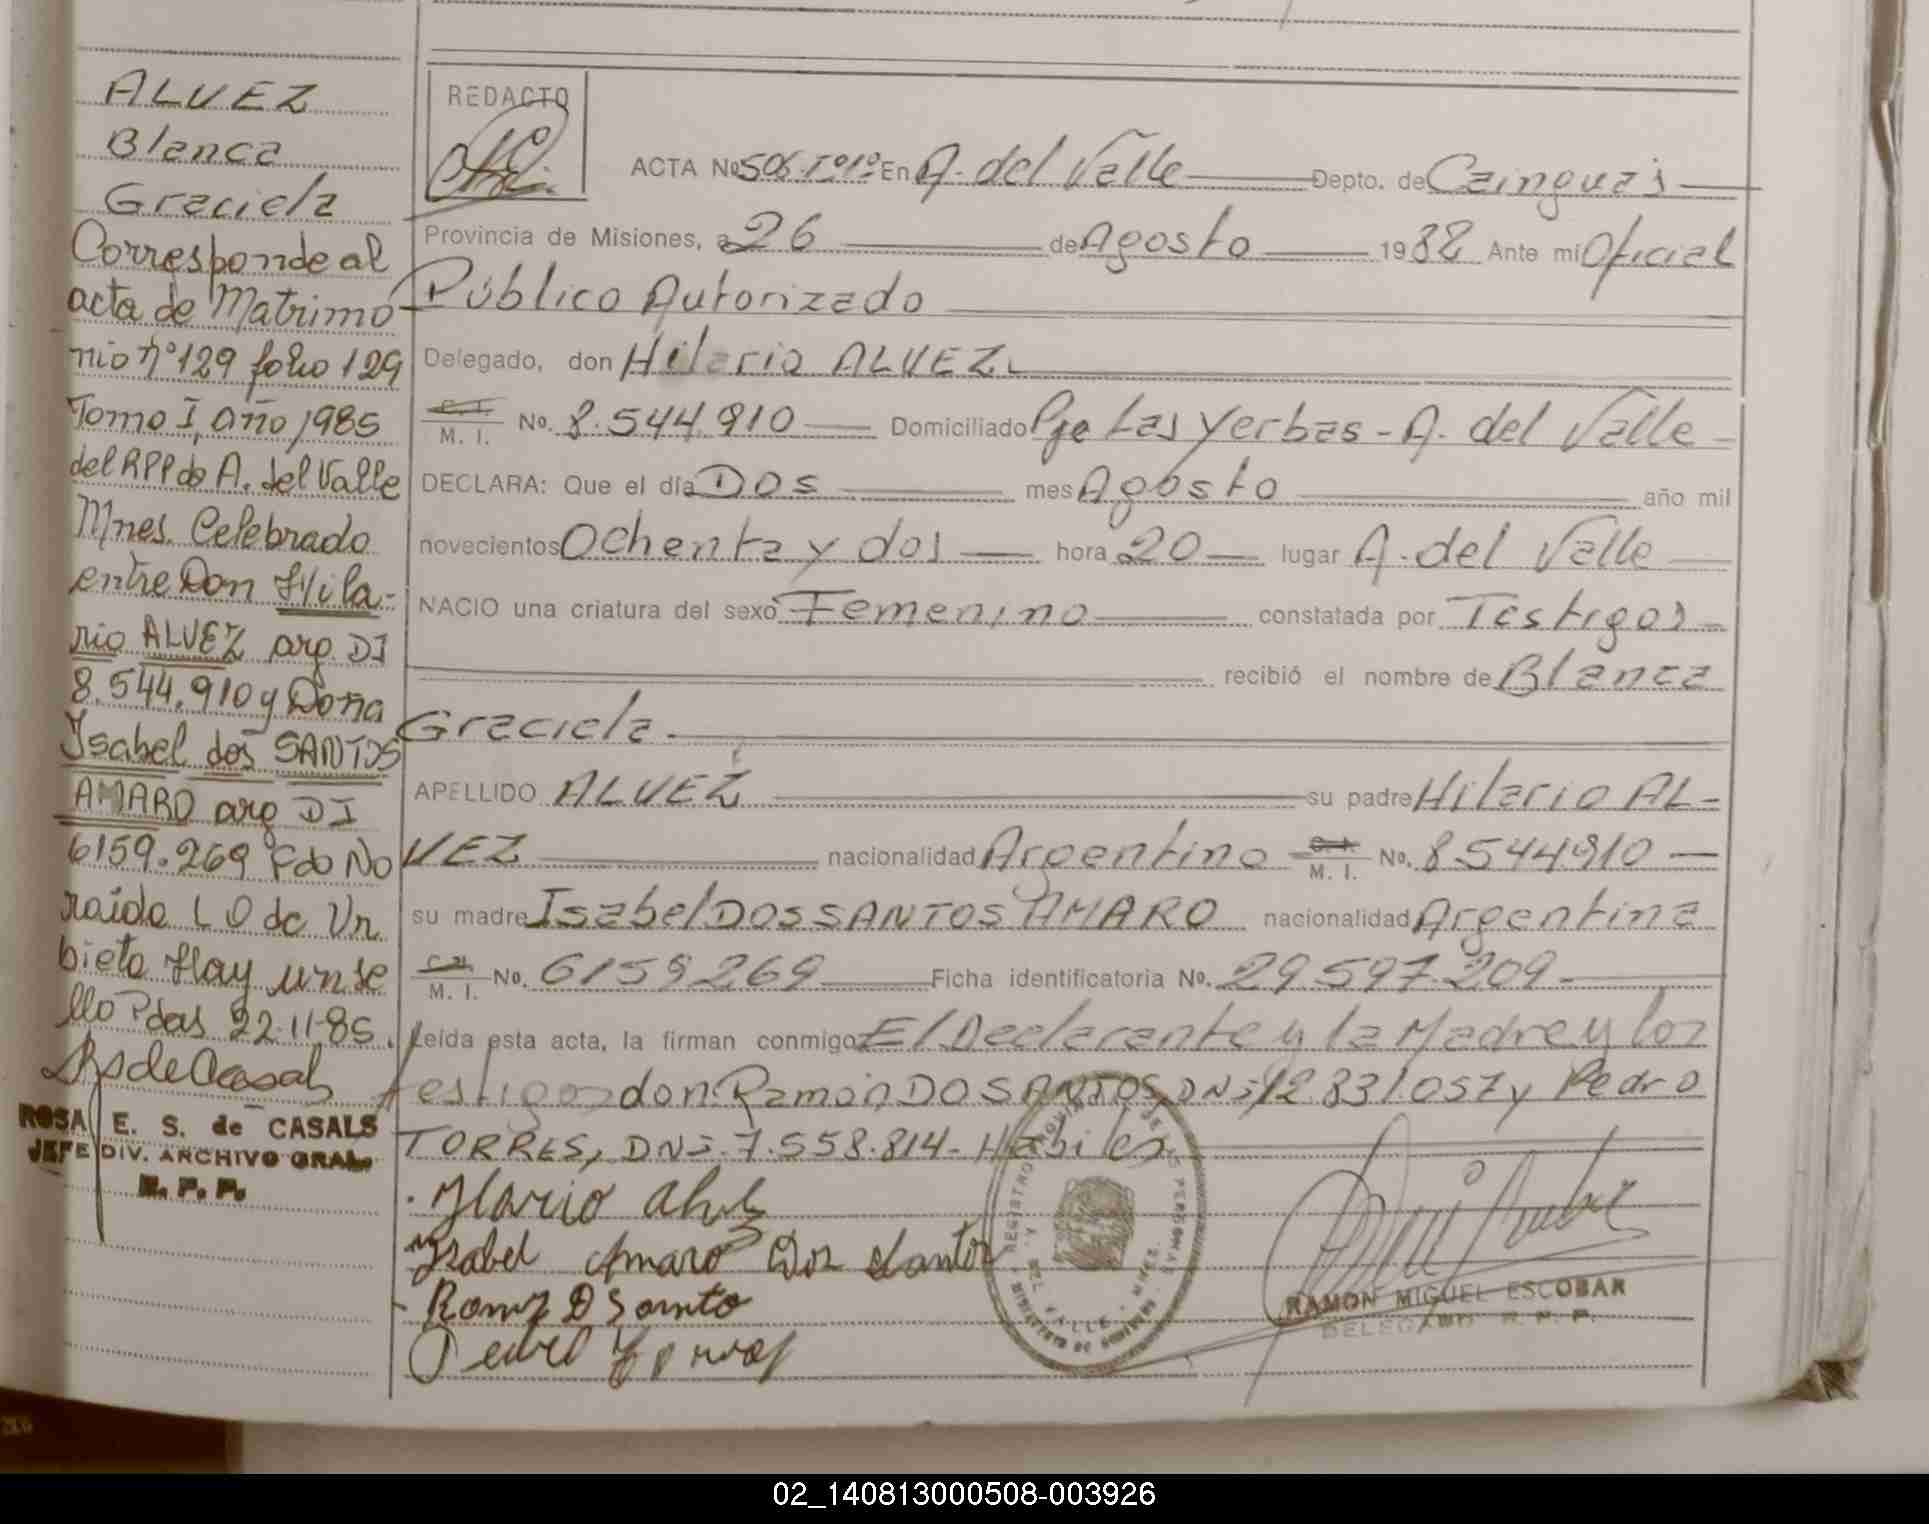 ALVEZ
Blanca
Graciela
Corresponde al
acta de Matrimo
nio nº 129 folio 129
Tomo I, año 1985
del RPP de A. del Valle
Mnes. Celebrado
entre Don Hila-
rio ALVEZ arg. DI
8.544.910 y Doña
Isabel dos SANTOS
AMARO arg DI
6159.269 Fdo No
raida L O de Ur
bieta Hay un se
llo Pdas 22-11-85.
RsdeCasals
ROSA E. S. de CASALS
JEFE DIV. ARCHIVO GRAL.
R. P. P.
REDACTO
ACTA Nº 506 Tº1º En A. del Valle Depto. de Cainguás
Provincia de Misiones, a 26 de Agosto 1982 Ante mi Oficial
Público Autorizado
Delegado, don Hilario ALVEZ.
C. I.
M. I. No. 8.544.910 Domiciliado Pje Las Yerbas - A. del Valle
DECLARA: Que el día Dos mes Agosto año mil
novecientos Ochenta y dos hora 20 lugar A. del Valle
NACIO una criatura del sexo Femenino constatada por Testigos
recibió el nombre de Blanca
Graciela.
APELLIDO ALVEZ su padre Hilario AL-
VEZ nacionalidad Argentino C. I. M. I. No. 8544910
su madre Isabel DOS SANTOS AMARO nacionalidad Argentina
C. I.
M. I. No. 6159269 Ficha identificatoria No. 29.597.209
Leída esta acta, la firman conmigo El Declarante y la Madre y los
testigos don Ramón DO SANTOS, DNI 12.831.057 y Pedro
TORRES, DNI. 7.558.814 - Habiles
Ilario alvez
Isabel Amaro Dos Santos
Ramon D Santo
Pedro Torres
REGISTRO PROVINCIAL DE LAS PERSONAS
DEL VALLE - MNES.
MINISTERIO DE GOBIERNO
RAMON MIGUEL ESCOBAR
DELEGADO R. P. P.
02_140813000508-003926